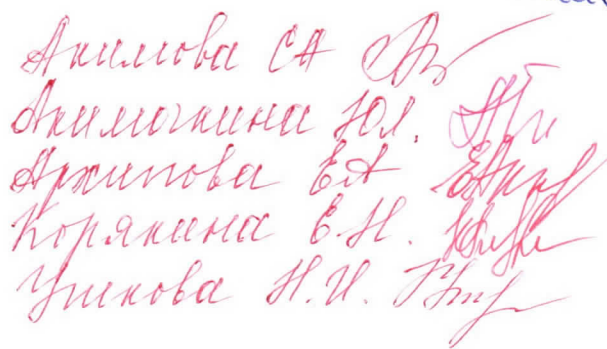 Акимова СА
Акимочкина Ю.А.
Архипова ЕА
Корякина Е.Н.
Ушкова Н.И.